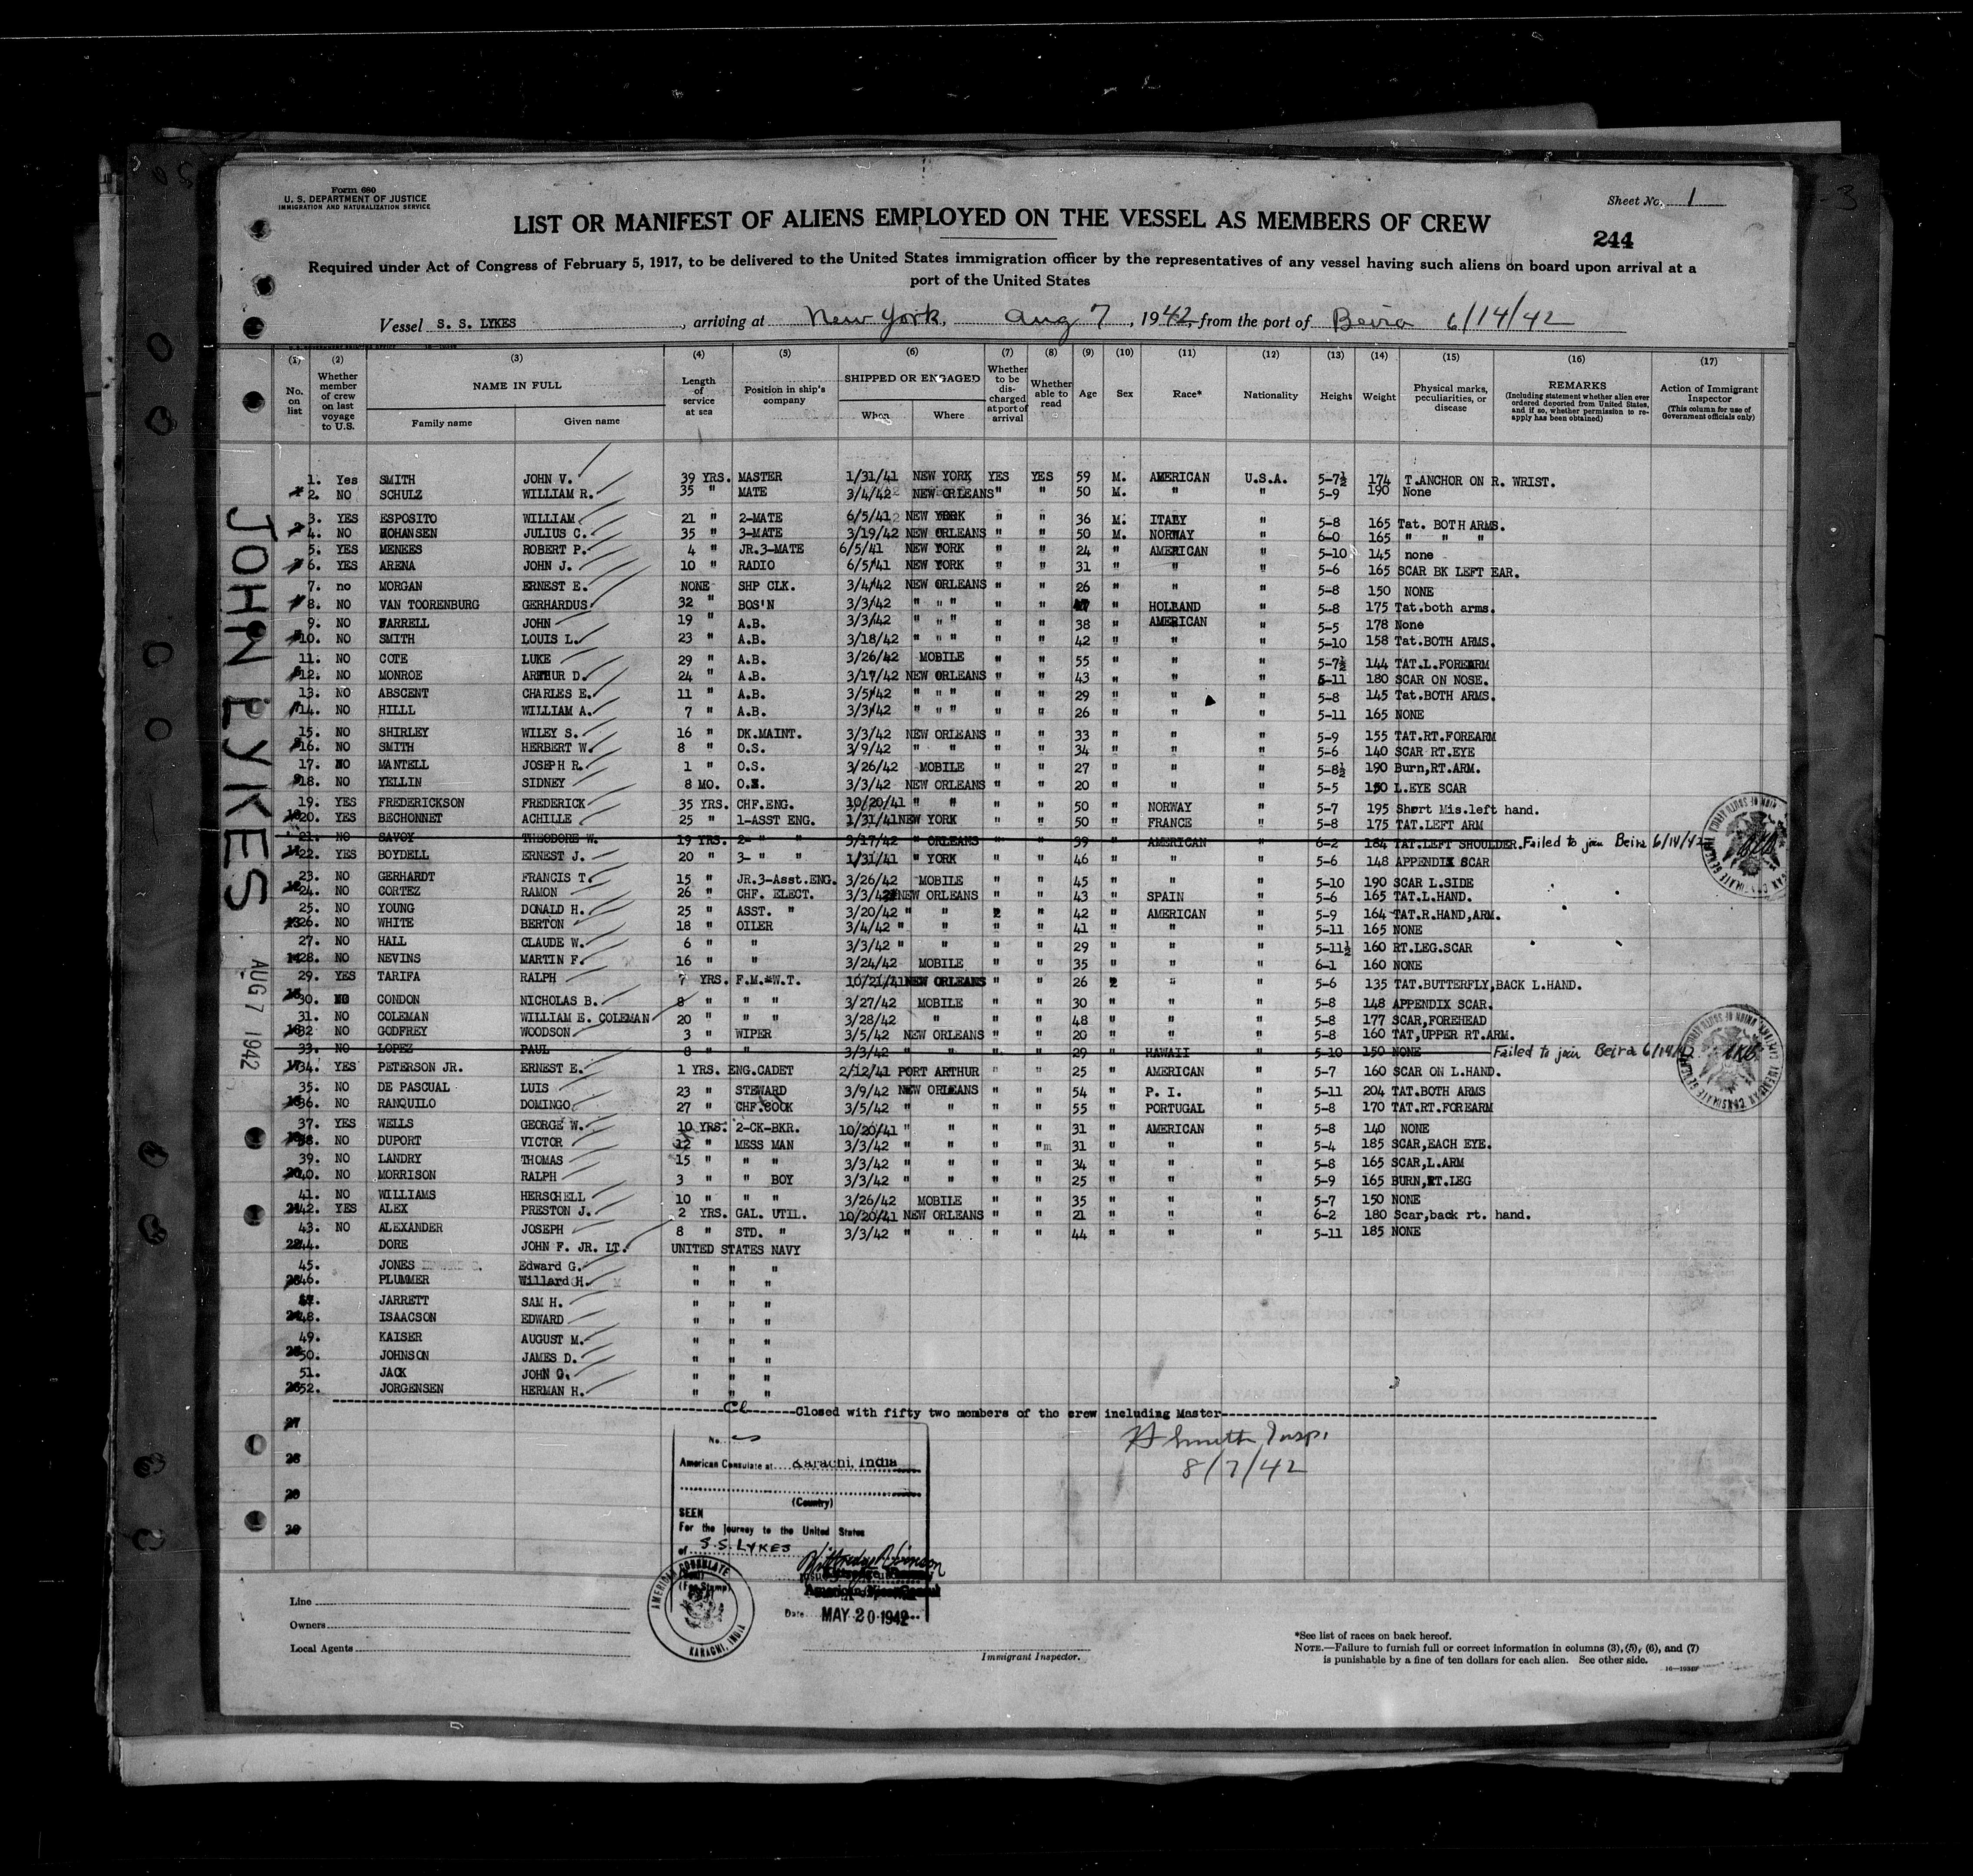 Form 680
U. S. DEPARTMENT OF JUSTICE
IMMIGRATION AND NATURALIZATION SERVICE
Sheet No. 1
LIST OR MANIFEST OF ALIENS EMPLOYED ON THE VESSEL AS MEMBERS OF CREW
244
Required under Act of Congress of February 5, 1917, to be delivered to the United States immigration officer by the representatives of any vessel having such aliens on board upon arrival at a
port of the United States
Vessel S. S. LYKES, arriving at New York, Aug 7, 1942, from the port of Beira 6/14/42
(1) (2) (3) (4) (5) (6) (7) (8) (9) (10) (11) (12) (13) (14) (15) (16) (17)
No. on list
Whether member of crew on last voyage to U.S.
NAME IN FULL
Family name
Given name
Length of service at sea
Position in ship's company
SHIPPED OR ENGAGED
When
Where
Whether to be discharged at port of arrival
Whether able to read
Age
Sex
Race*
Nationality
Height
Weight
Physical marks, peculiarities, or disease
REMARKS
(Including statement whether alien ever ordered deported from United States, and if so, whether permission to reapply has been obtained)
Action of Immigrant Inspector
(This column for use of Government officials only)
1. Yes SMITH JOHN V. 39 YRS. MASTER 1/31/41 NEW YORK YES YES 59 M. AMERICAN U.S.A. 5-7½ 174 T.ANCHOR ON R. WRIST.
2. NO SCHULZ WILLIAM R. 35 " MATE 3/4/42 NEW ORLEANS " " 50 M. " " 5-9 190 None
3. YES ESPOSITO WILLIAM 21 " 2-MATE 6/5/41 NEW YORK " " 36 M. ITALY " 5-8 165 Tat. BOTH ARMS.
4. NO JOHANSEN JULIUS C. 35 " 3-MATE 3/19/42 NEW ORLEANS " " 50 M. NORWAY " 6-0 165 " " "
5. YES MENEES ROBERT P. 4 " JR.3-MATE 6/5/41 NEW YORK " " 24 " AMERICAN " 5-10 145 none
6. YES ARENA JOHN J. 10 " RADIO 6/5/41 NEW YORK " " 31 " " " 5-6 165 SCAR BK LEFT EAR.
7. no MORGAN ERNEST E. NONE SHP CLK. 3/4/42 NEW ORLEANS " " 26 " " " 5-8 150 NONE
8. NO VAN TOORENBURG GERHARDUS 32 " BOS'N 3/3/42 " " " " " " HOLLAND " 5-8 175 Tat.both arms.
9. NO FARRELL JOHN 19 " A.B. 3/3/42 " " " " " 38 " AMERICAN " 5-5 178 None
10. NO SMITH LOUIS L. 23 " A.B. 3/18/42 " " " " " 42 " " " 5-10 158 Tat.BOTH ARMS.
11. NO COTE LUKE 29 " A.B. 3/26/42 MOBILE " " 55 " " " 5-7½ 144 TAT.L.FOREARM
12. NO MONROE ARTHUR D. 24 " A.B. 3/17/42 NEW ORLEANS " " 43 " " " 5-11 180 SCAR ON NOSE.
13. NO ABSCENT CHARLES E. 11 " A.B. 3/5/42 " " " " " 29 " " " 5-8 145 Tat.BOTH ARMS.
14. NO HILLL WILLIAM A. 7 " A.B. 3/3/42 " " " " " 26 " " " 5-11 165 NONE
15. NO SHIRLEY WILEY S. 16 " DK.MAINT. 3/3/42 NEW ORLEANS " " 33 " " " 5-9 155 TAT.RT.FOREARM
16. NO SMITH HERBERT W. 8 " O.S. 3/9/42 " " " " 34 " " " 5-6 140 SCAR RT.EYE
17. NO MANTELL JOSEPH R. 1 " O.S. 3/26/42 MOBILE " " 27 " " " 5-8½ 190 Burn,RT.ARM.
18. NO YELLIN SIDNEY 8 MO. O.S. 3/3/42 NEW ORLEANS " " 20 " " " 5-5 L.EYE SCAR
19. YES FREDERICKSON FREDERICK 35 YRS. CHF.ENG. 10/20/41 " " " " 50 " NORWAY " 5-7 195 Short Mis.left hand.
20. YES BECHONNET ACHILLE 25 " 1-ASST ENG. 1/31/41 NEW YORK " " 50 " FRANCE " 5-8 175 TAT.LEFT ARM
21. NO SAVOY THEODORE W. 19 YRS. 2- " " 3/17/42 " ORLEANS " " 39 " AMERICAN " 6-2 184 TAT.LEFT SHOULDER. Failed to join Beira 6/14/42
22. YES BOYDELL ERNEST J. 20 " 3- " " 1/31/41 " YORK " " 46 " " " 5-6 148 APPENDIX SCAR
23. NO GERHARDT FRANCIS T. 15 " JR.3-Asst.ENG. 3/26/42 MOBILE " " 45 " " " 5-10 190 SCAR L.SIDE
24. NO CORTEZ RAMON 26 " CHF. ELECT. 3/3/42 NEW ORLEANS " " 43 " SPAIN " 5-6 165 TAT.L.HAND.
25. NO YOUNG DONALD H. 25 " ASST. " 3/20/42 " " " 42 " AMERICAN " 5-9 164 TAT.R.HAND,ARM.
26. NO WHITE BERTON 18 " OILER 3/4/42 " " " " 41 " " " 5-11 165 NONE
27. NO HALL CLAUDE W. 6 " " 3/3/42 " " " " 29 " " " 5-11½ 160 RT.LEG.SCAR
28. NO NEVINS MARTIN F. 16 " " 3/24/42 MOBILE " " 35 " " " 6-1 160 NONE
29. YES TARIFA RALPH 7 YRS. F.M.-W.T. 10/21/41 NEW ORLEANS " " 26 " " 5-6 135 TAT.BUTTERFLY,BACK L.HAND.
30. NO CONDON NICHOLAS B. 8 " " " 3/27/42 MOBILE " " 30 " " " 5-8 148 APPENDIX SCAR.
31. NO COLEMAN WILLIAM E. COLEMAN 20 " " " 3/28/42 " " " 48 " " " 5-8 177 SCAR,FOREHEAD
32 NO GODFREY WOODSON 3 " WIPER 3/5/42 NEW ORLEANS " " 20 " " " 5-8 160 TAT,UPPER RT.ARM.
33. NO LOPEZ PAUL 8 " " 3/3/42 " " " " 29 " HAWAII " 5-10 150 NONE Failed to join Beira 6/14/42
34. YES PETERSON JR. ERNEST E. 1 YRS. ENG.CADET 2/12/41 PORT ARTHUR " " 25 " AMERICAN " 5-7 160 SCAR ON L.HAND.
35. NO DE PASCUAL LUIS 23 " STEWARD 3/9/42 NEW ORLEANS " " 54 " P. I. " 5-11 204 TAT.BOTH ARMS
36. NO RANQUILO DOMINGO 27 " CHF.COOK 3/5/42 " " " " 55 " PORTUGAL " 5-8 170 TAT.RT.FOREARM
37. YES WELLS GEORGE W. 10 YRS. 2-CK-BKR. 10/20/41 " " " " 31 " AMERICAN " 5-8 140 NONE
38. NO DUPORT VICTOR 12 " MESS MAN 3/3/42 " " " "m 31 " " " 5-4 185 SCAR,EACH EYE.
39. NO LANDRY THOMAS 15 " " " 3/3/42 " " " " 34 " " " 5-8 165 SCAR,L.ARM
40. NO MORRISON RALPH 3 " " BOY 3/3/42 " " " " 25 " " " 5-9 165 BURN,RT.LEG
41. NO WILLIAMS HERSCHELL 10 " " " 3/26/42 MOBILE " " 35 " " " 5-7 150 NONE
42. YES ALEX PRESTON J. 2 YRS. GAL. UTIL. 10/20/41 NEW ORLEANS " " 21 " " " 6-2 180 Scar,back rt. hand.
43. NO ALEXANDER JOSEPH 8 " STD. " 3/3/42 " " " " 44 " " " 5-11 185 NONE
44. DORE JOHN F. JR. LT. UNITED STATES NAVY
45. JONES Edward G. " " "
46. PLUMMER Willard H. " " "
47. JARRETT SAM H. " " "
48. ISAACSON EDWARD " " "
49. KAISER AUGUST M. " " "
50. JOHNSON JAMES D. " " "
51. JACK JOHN G. " " "
52. JORGENSEN HERMAN H. " " "
Closed with fifty two members of the crew including Master
27
28
29
H Smith, Insp.
8/7/42
No.
American Consulate at Karachi, India
(Country)
SEEN
For the journey to the United States
of S.S. LYKES
(Fee Stamp)
Date MAY 20 1942
AMERICAN CONSULATE
KARACHI, INDIA
Line
Owners
Local Agents
Immigrant Inspector.
*See list of races on back hereof.
NOTE.—Failure to furnish full or correct information in columns (3), (5), (6), and (7)
is punishable by a fine of ten dollars for each alien. See other side.
JOHN LYKES
AUG 7 1942